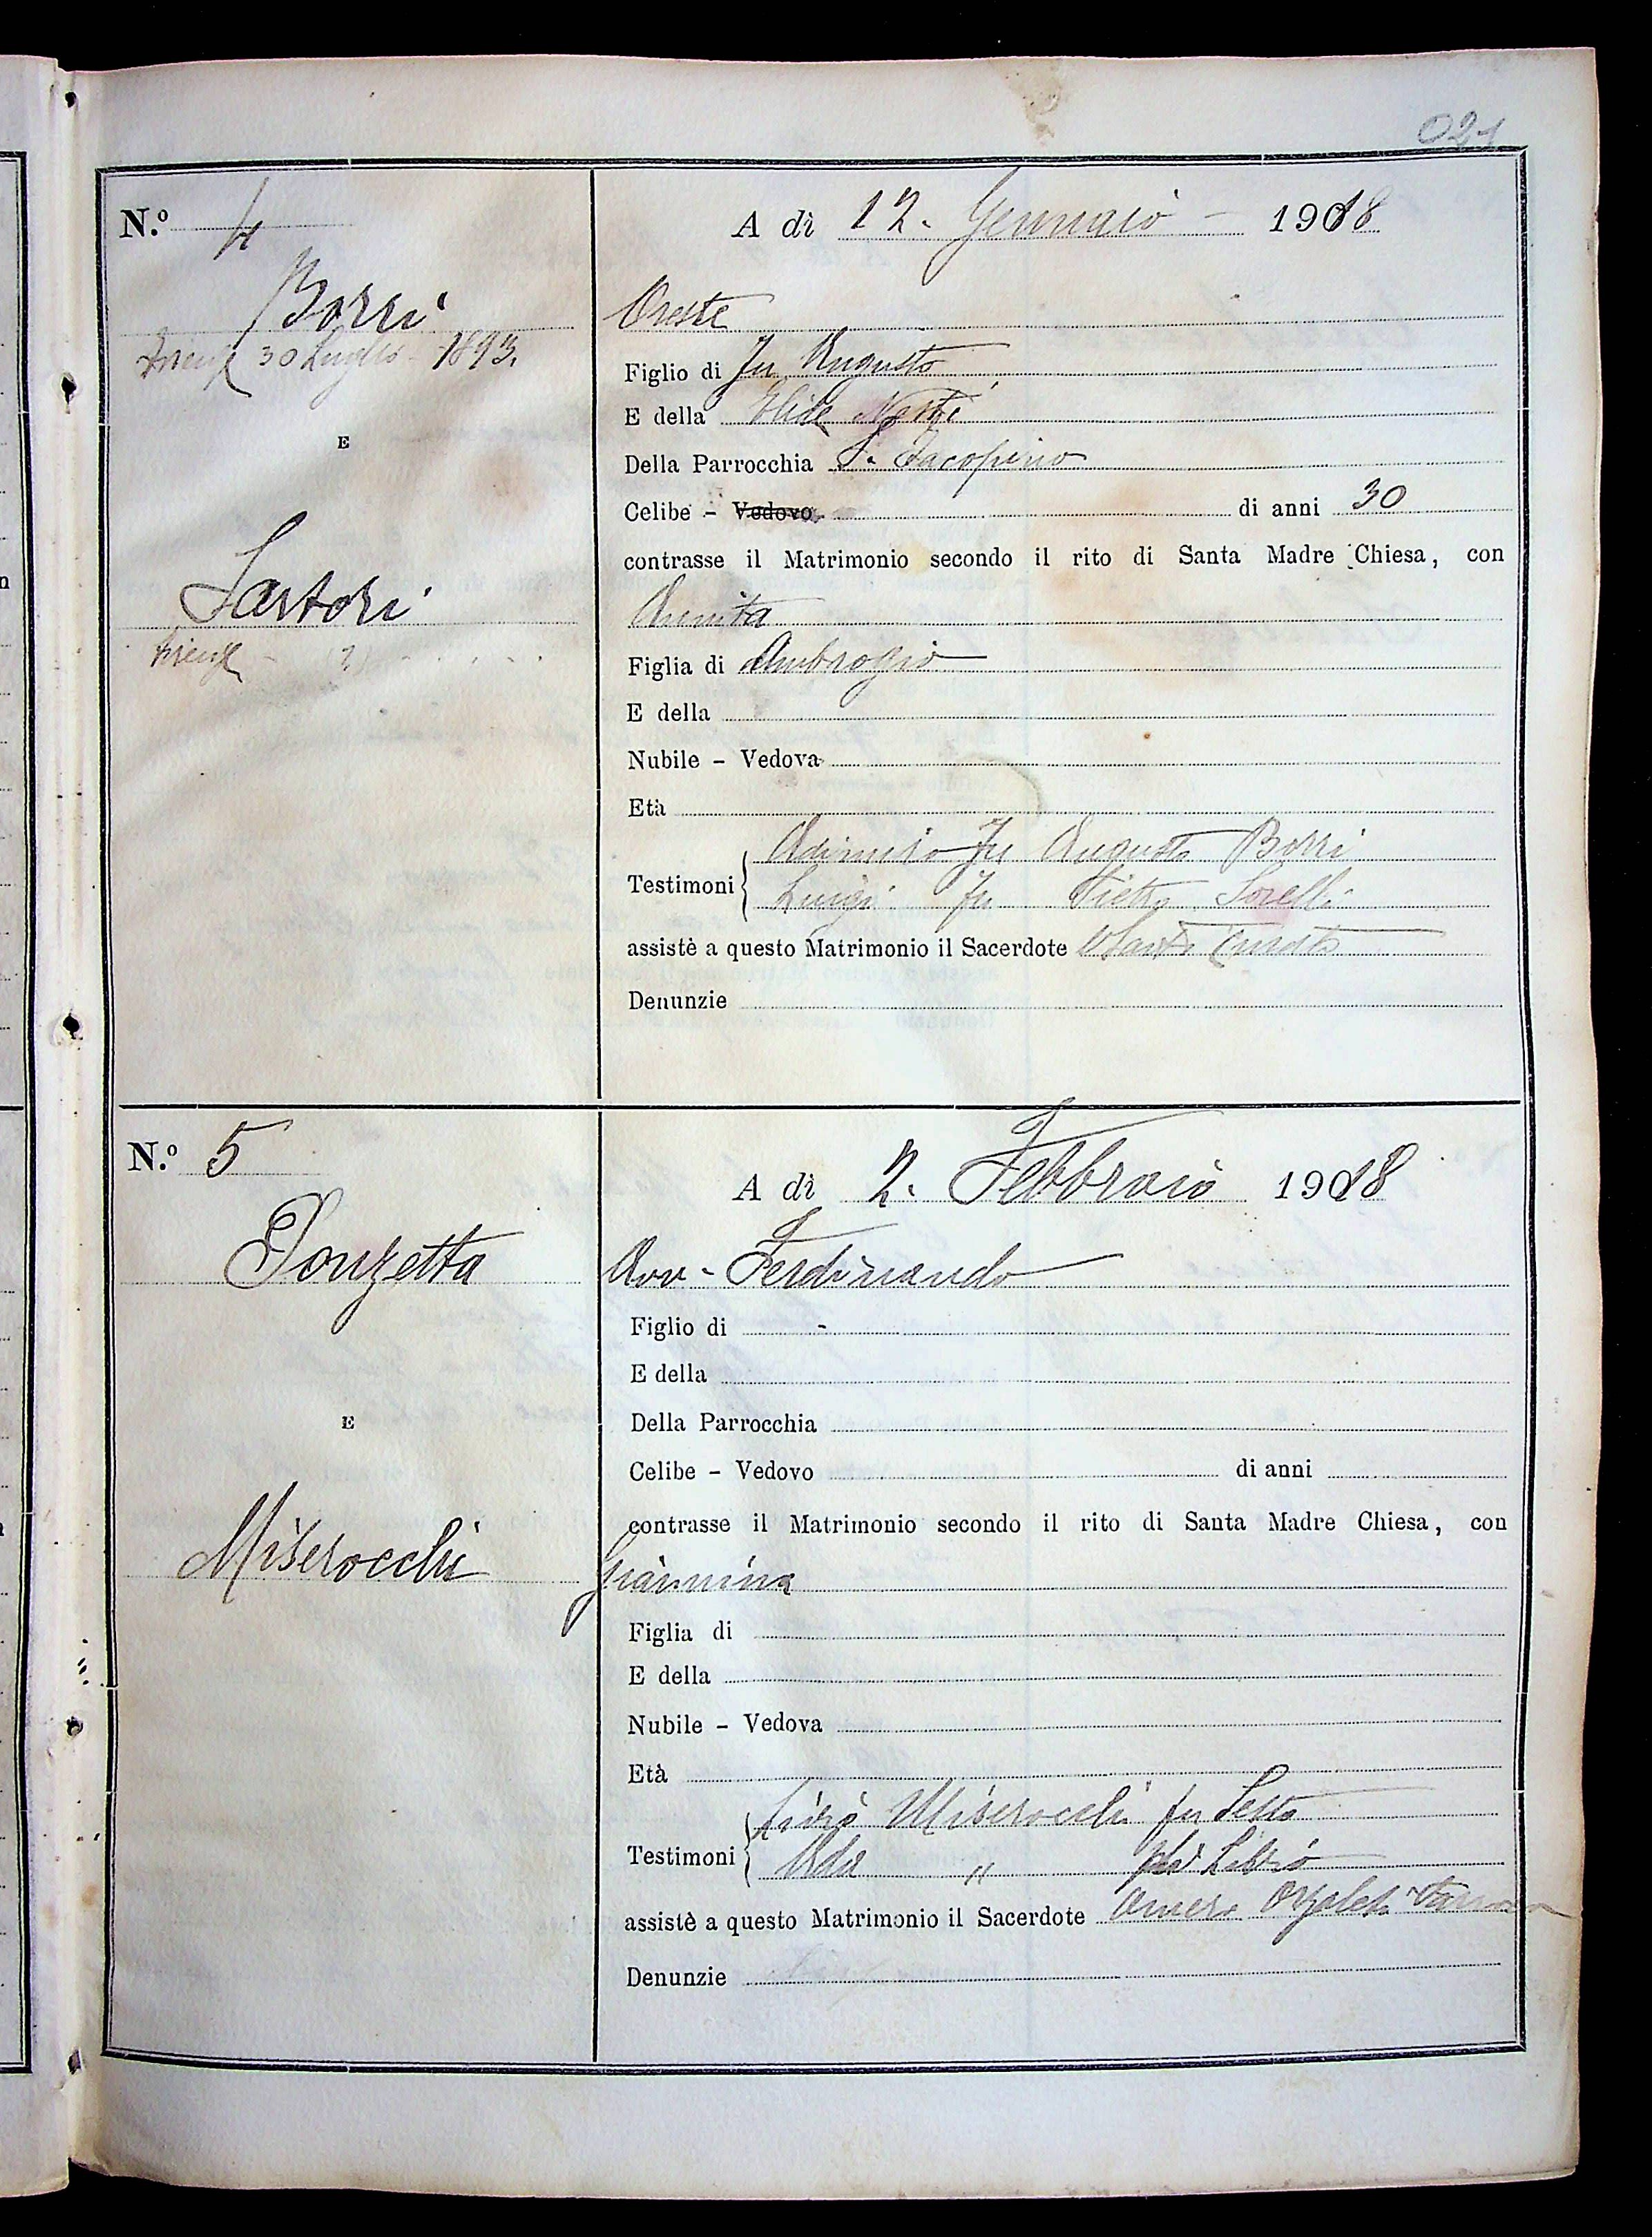 021
N.º 4
A dì 12. Gennaio - 1918
Borri
Firenze 30 Luglio - 1893.
E
Sartori
Firenze - (?) - . . . .
Oreste
Figlio di fu Augusto
E della Elide
Della Parrocchia S. Jacopino
Celibe - Vedovo di anni 30
contrasse il Matrimonio secondo il rito di Santa Madre Chiesa, con
Annita
Figlia di Ambrogio
E della
Nubile - Vedova
Età
Testimoni { Adimiro fu Augusto Borri
Luigi fu Pietro Sorelli
assistè a questo Matrimonio il Sacerdote
Denunzie
N.º 5
A dì 2. Febbraio 1918
Ponzetta
E
Miserocchi
Avv. Ferdinando
Figlio di -
E della
Della Parrocchia
Celibe - Vedovo di anni
contrasse il Matrimonio secondo il rito di Santa Madre Chiesa, con
Giannina
Figlia di
E della
Nubile - Vedova
Età
Testimoni { Miserocchi fu Sesto
Ada "
assistè a questo Matrimonio il Sacerdote Omero
Denunzie